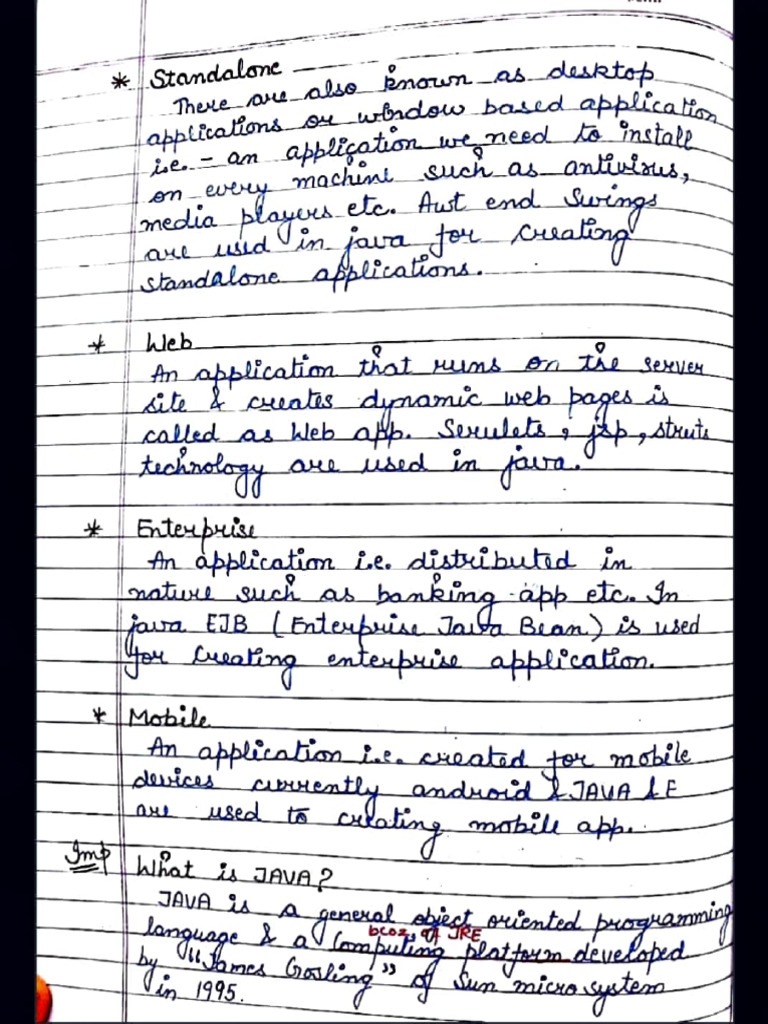 * Standalone
There are also known as desktop
applications or window based application
i.e. - an application we need to install
on every machine such as antivirus,
media players etc. Awt end Swings
are used in java for creating
standalone applications.
* Web
An application that runs on the server
site & creates dynamic web pages is
called as Web app. Serulets, jsp, struts
technology are used in java.
* Enterprise
An application i.e. distributed in
nature such as banking app etc. In
java EJB (Enterprise Java Bean) is used
for creating enterprise application.
* Mobile
An application i.e. created for mobile
devices currently android & JAVA & E
are used to creating mobile app.
Imp What is JAVA?
JAVA is a general object oriented programming
bcoz of JRE
language & a Computing platform developed
by "James Gosling" of Sun micro system
in 1995.